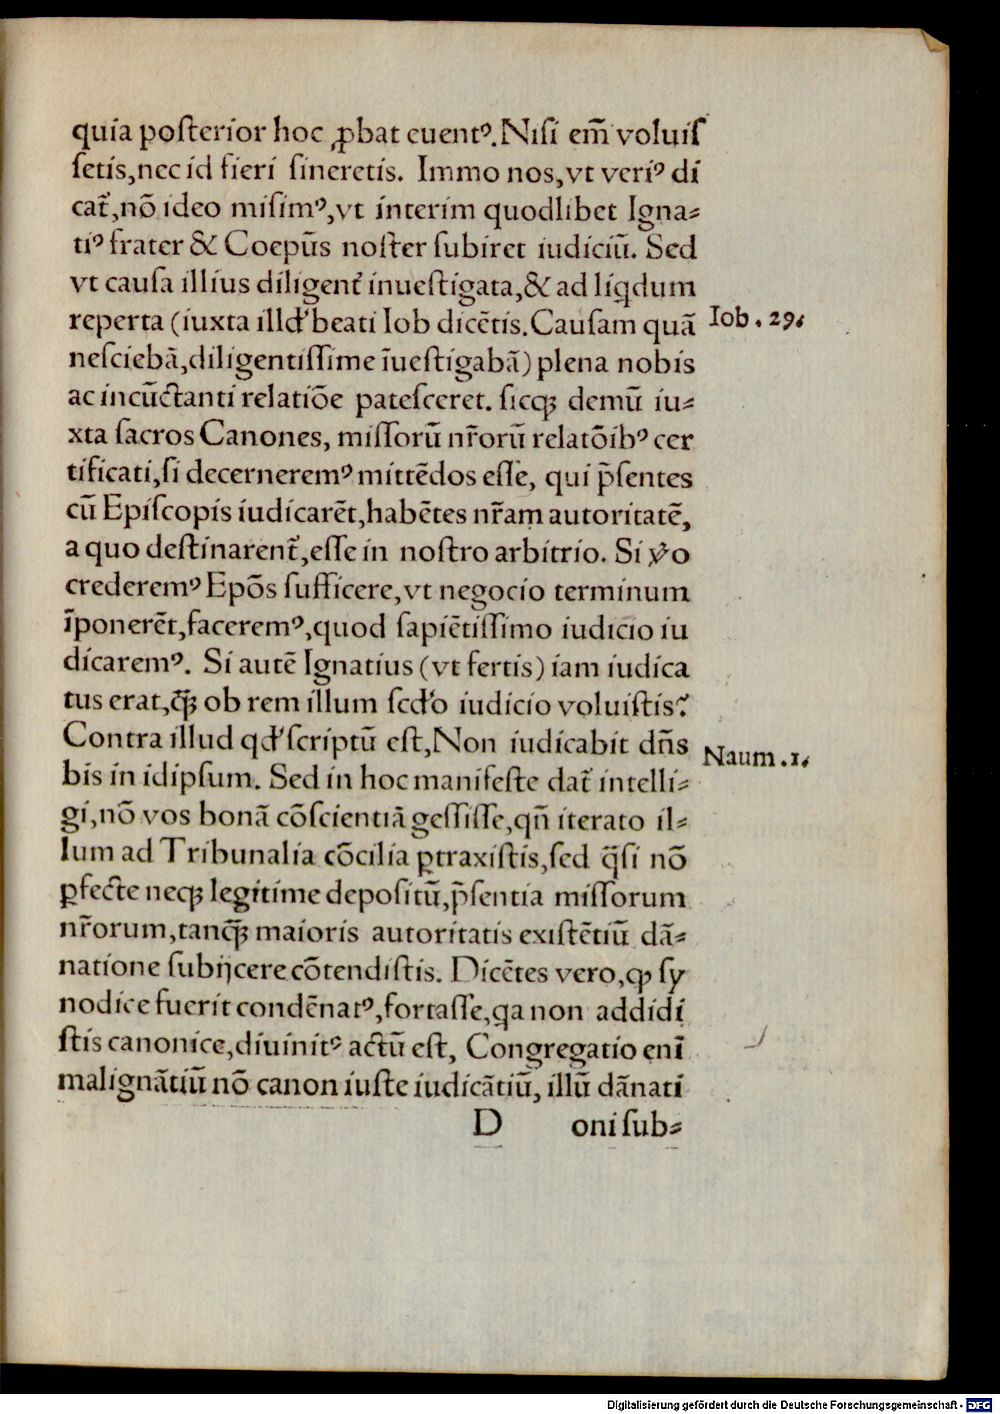 quia poſterior hoc ꝓbat euentꝰ. Niſi em̃ voluiſ
ſetis, nec id fieri ſineretis. Immo nos, vt veriꝰ di
cat᷑, nõ ideo miſimꝰ, vt interim quodlibet Igna⸗
tiꝰ frater & Coepũs noſter ſubiret iudiciũ. Sed
vt cauſa illius diligent᷑ inueſtigata, & ad liqdum
reperta (iuxta illđ beati Iob dicẽtis. Cauſam quã
Iob. 29.
neſciebã, diligentiſſime ĩueſtigabã) plena nobis
ac incũctanti relatiõe pateſceret. ſicqꝫ demũ iu⸗
xta ſacros Canones, miſſorũ nr̃orũ relatõibꝰ cer
tificati, ſi decerneremꝰ mittẽdos eſſe, qui p̃ſentes
cũ Epiſcopis iudicarẽt, habẽtes nr̃am autoritatẽ,
a quo deſtinarent᷑, eſſe in noſtro arbitrio. Si ꝟo
crederemꝰ Epõs ſufficere, vt negocio terminum
ĩponerẽt, faceremꝰ, quod ſapiẽtiſſimo iudicio iu
dicaremꝰ. Si autẽ Ignatius (vt fertis) iam iudica
tus erat, q̃ꝫ ob rem illum ſcđo iudicio voluiſtis?
Contra illud qđ ſcriptũ eſt, Non iudicabit dñs
Naum. 1.
bis in idipſum. Sed in hoc manifeſte dat᷑ intelli⸗
gi, nõ vos bonã cõſcientiã geſſiſſe, qñ iterato il⸗
lum ad Tribunalia cõcilia ꝑtraxiſtis, ſed q̃ſi nõ
ꝑfecte neqꝫ legitime depoſitũ, p̃ſentia miſſorum
nr̃orum, tanq̃ꝫ maioris autoritatis exiſtẽtiũ dã⸗
natione ſubijcere cõtendiſtis. Dicẽtes vero, ꝙ ſy
nodice fuerit condẽnatꝰ, fortaſſe, qa non addidi
ſtis canonice, diuinitꝰ actũ eſt, Congregatio enĩ
malignãtiũ nõ canon iuſte iudicãtiũ, illũ dãnati
D oni ſub⸗
Digitalisierung gefördert durch die Deutsche Forschungsgemeinschaft - DFG